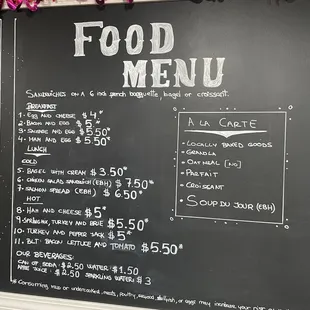 FOOD
MENU
SANDWICHES ON A 6 inch french baguette, bagel or croissant.
BREAKFAST
1- EGG AND CHEESE $4*
2- BACON AND EGG $5*
3- SAUSAGE AND EGG $5.50*
4- HAM AND EGG $5.50*
LUNCH
COLD
5- BAGEL WITH CREAM $3.50*
6- CHICKEN SALAD SANDWICH (EBH) $7.50*
7- SALMON SPREAD (EBH) $6.50*
HOT
8- HAM AND CHEESE $5*
TURKEY AND BRIE $5.50*
10- TURKEY AND PEPPER JACK $5*
11- BLT: BACON LETTUCE AND TOMATO $5.50*
OUR BEVERAGES:
CAN OF SODA: $2.50 WATER: $1.50
JUICE: $2.50 SPARKLING WATER: $3
* Consuming raw or undercooked meats, poultry, seafood, shellfish, or eggs may increase your risk
A LA CARTE
- LOCALLY BAKED GOODS
- GRANOLA
- OATMEAL [NO]
- PARFAIT
- CROISSANT
- SOUP DU JOUR (EBH)